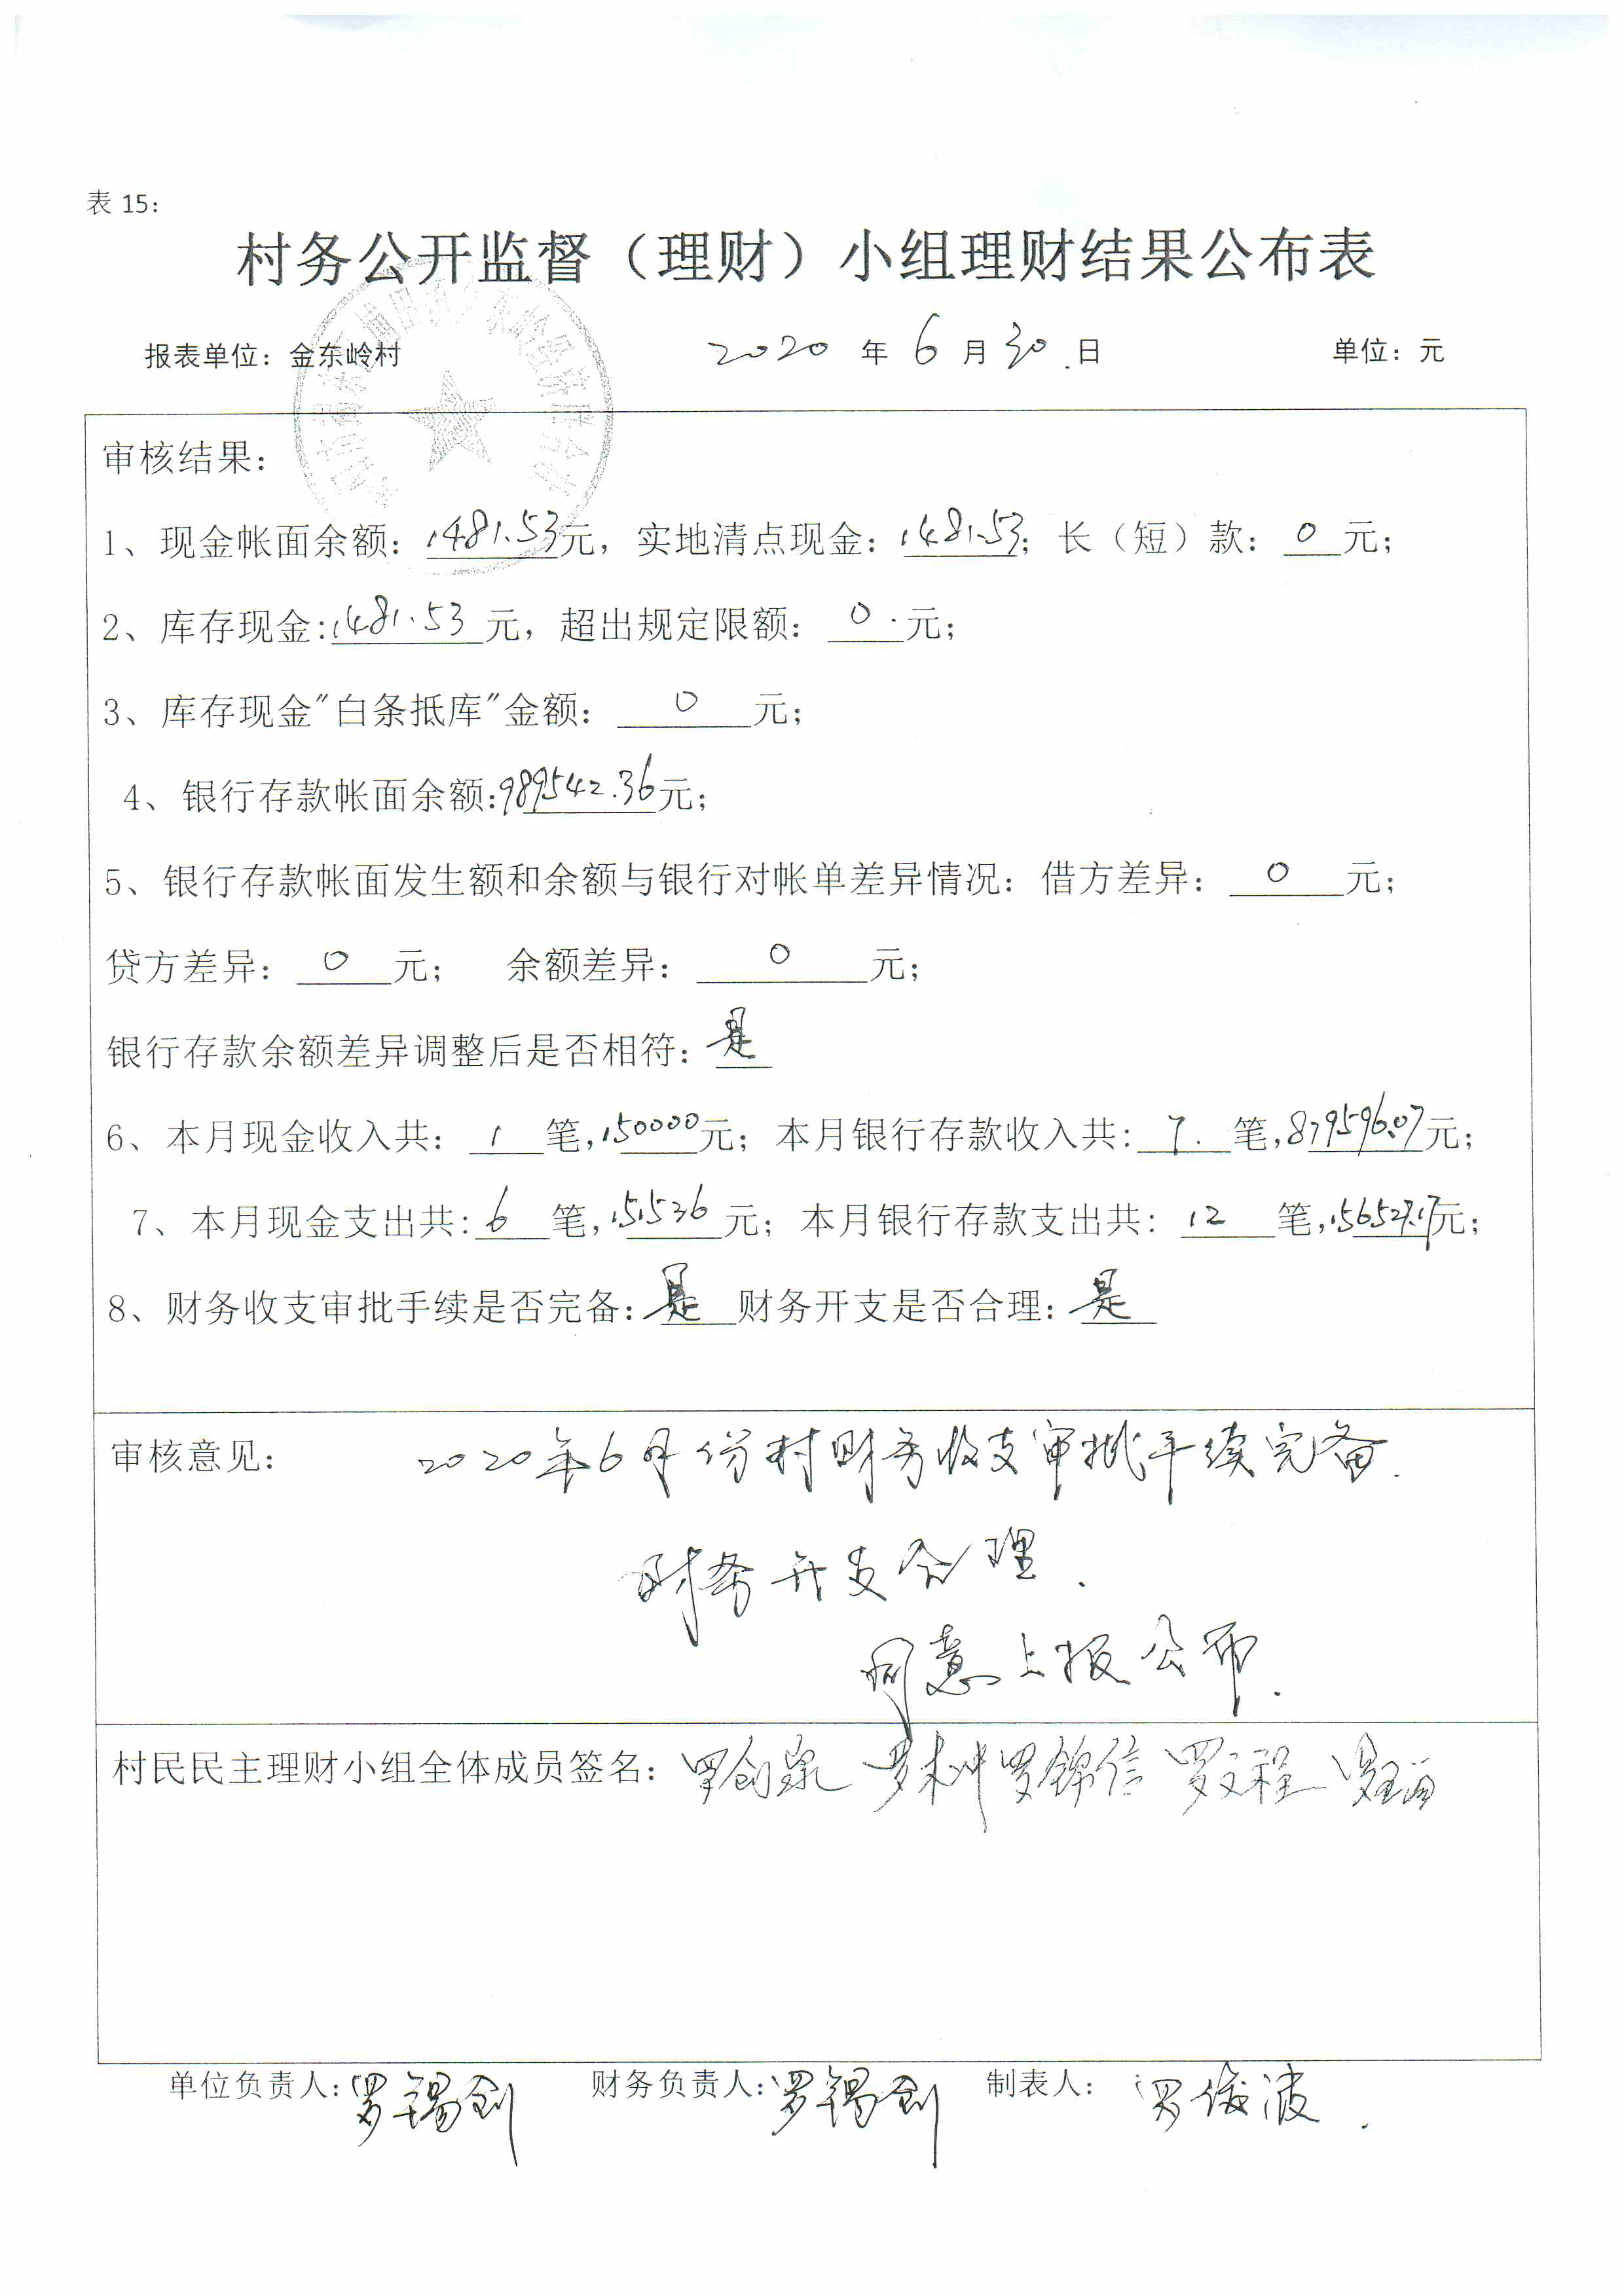 表 15：
村务公开监督（理财）小组理财结果公布表
报表单位：金东岭村 2020 年 6 月 30 日 单位：元
审核结果：
1、现金帐面余额：1481.53元，实地清点现金：1481.53；长（短）款：0元；
2、库存现金:1481.53元，超出规定限额：0元；
3、库存现金"白条抵库"金额：0元；
4、银行存款帐面余额:989542.36元；
5、银行存款帐面发生额和余额与银行对帐单差异情况：借方差异：0元；
贷方差异：0元； 余额差异：0元；
银行存款余额差异调整后是否相符：是
6、本月现金收入共：1笔,150000元；本月银行存款收入共：7笔,879596.07元；
7、本月现金支出共:6笔,151536元；本月银行存款支出共：12笔,156527.17元；
8、财务收支审批手续是否完备：是 财务开支是否合理：是
审核意见： 2020年6月份村财务收支审批手续完备.
财务开支合理.
同意上报公布.
村民民主理财小组全体成员签名： 罗锦信 罗文程
单位负责人:罗锡钊 财务负责人:罗锡钊 制表人： 罗俊波.